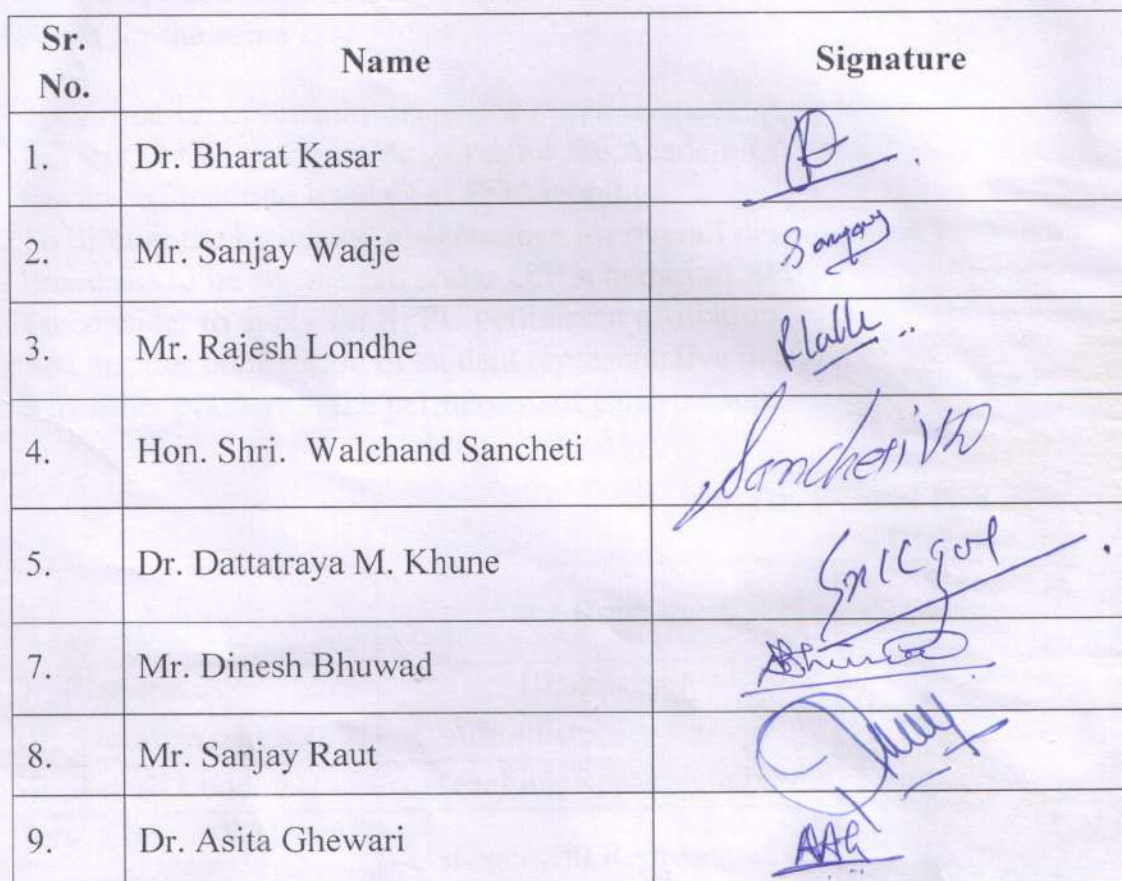 Sr. No. Name Signature
1. Dr. Bharat Kasar
2. Mr. Sanjay Wadje Sanjay
3. Mr. Rajesh Londhe
4. Hon. Shri. Walchand Sancheti Sancheti
5. Dr. Dattatraya M. Khune
7. Mr. Dinesh Bhuwad
8. Mr. Sanjay Raut
9. Dr. Asita Ghewari AAG